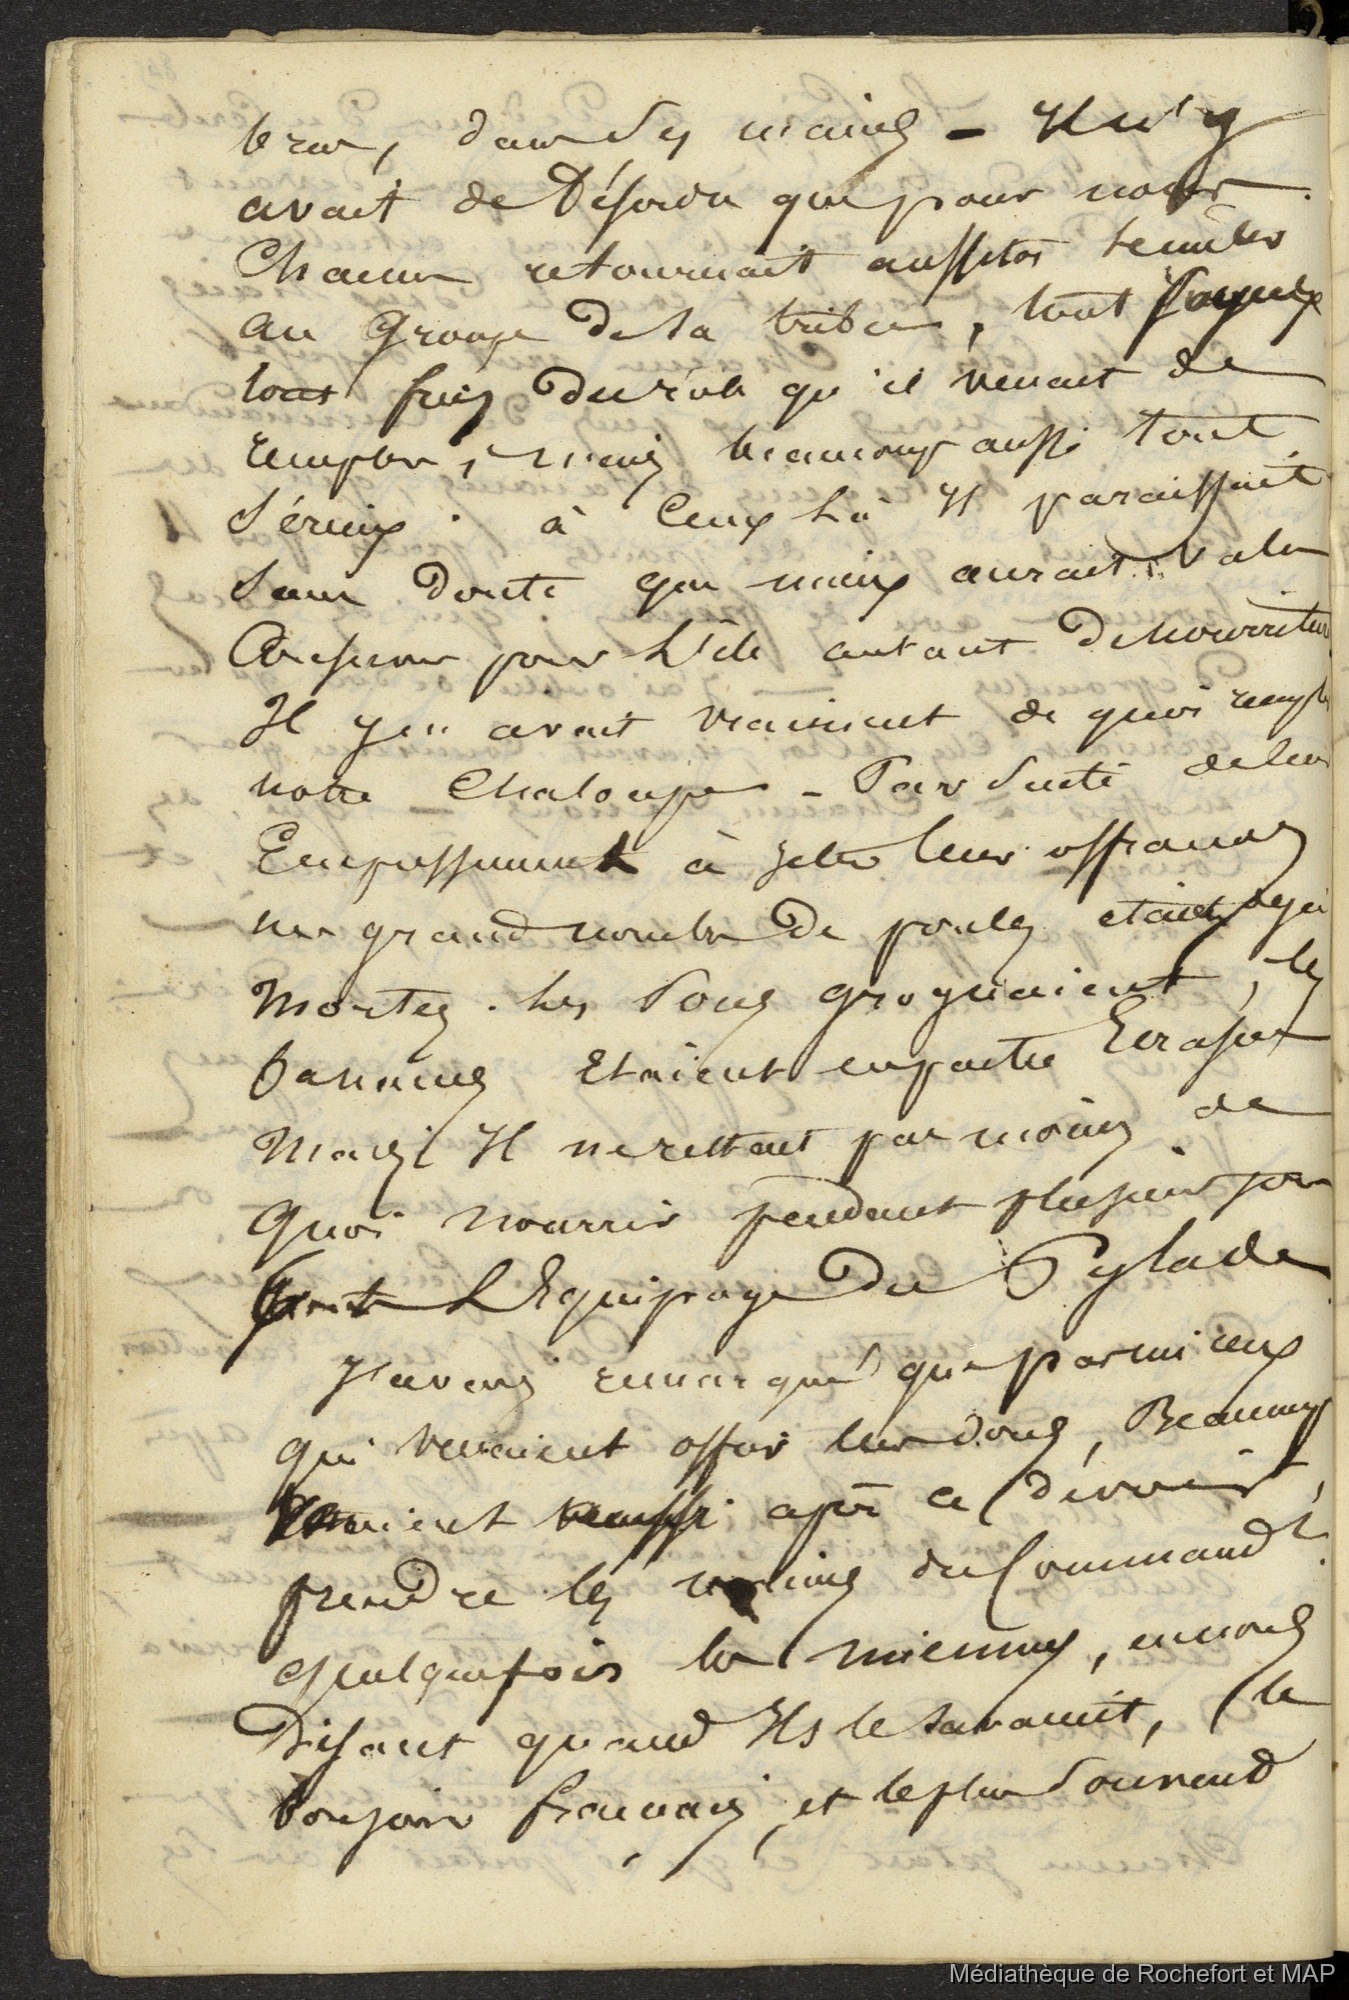 bras, dans ses mains – Il n'y
avait de Désordre que pour nous.
Chacun retournait aussitôt sembler
au Groupe de sa tribu, tout joyeux
tout fier du rôle qu'il venait de
remplir, mais beaucoup aussi tout
Sérieux. à Ceux là Il paraissait
Sans doute que mieux aurait valu
Conserver pour L'ile autant de nourriture
Il y en avait vraiment de quoi remplir
notre Chaloupe – Par suite de leur
Empressement à jeter leur offrandes
un grand nombre de poules etaient deja
Mortes. les Porcs grognaient, les
bananes Etaient en partie Ecrasées
Mais Il ne restait pas moins de
Quoi nourrir pendant plusieurs jours
L'Equipage Du Pylade
J'avais remarqué que parmi ceux
qui venaient offrir leur dons, Beaucoup
venaient aussi après ce devoir,
prendre les mains du Commandt.
quelquefois les miennes, en nous
Disant quand Ils le savaient, le
bonjour français, et le plus Souvent
Médiathèque de Rochefort et MAP